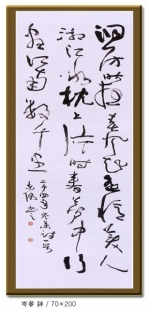 洞房昨夜春風起遙憶美人
湘江水枕上片時春夢中行
盡江南數千里
岑參 詩 / 70×200